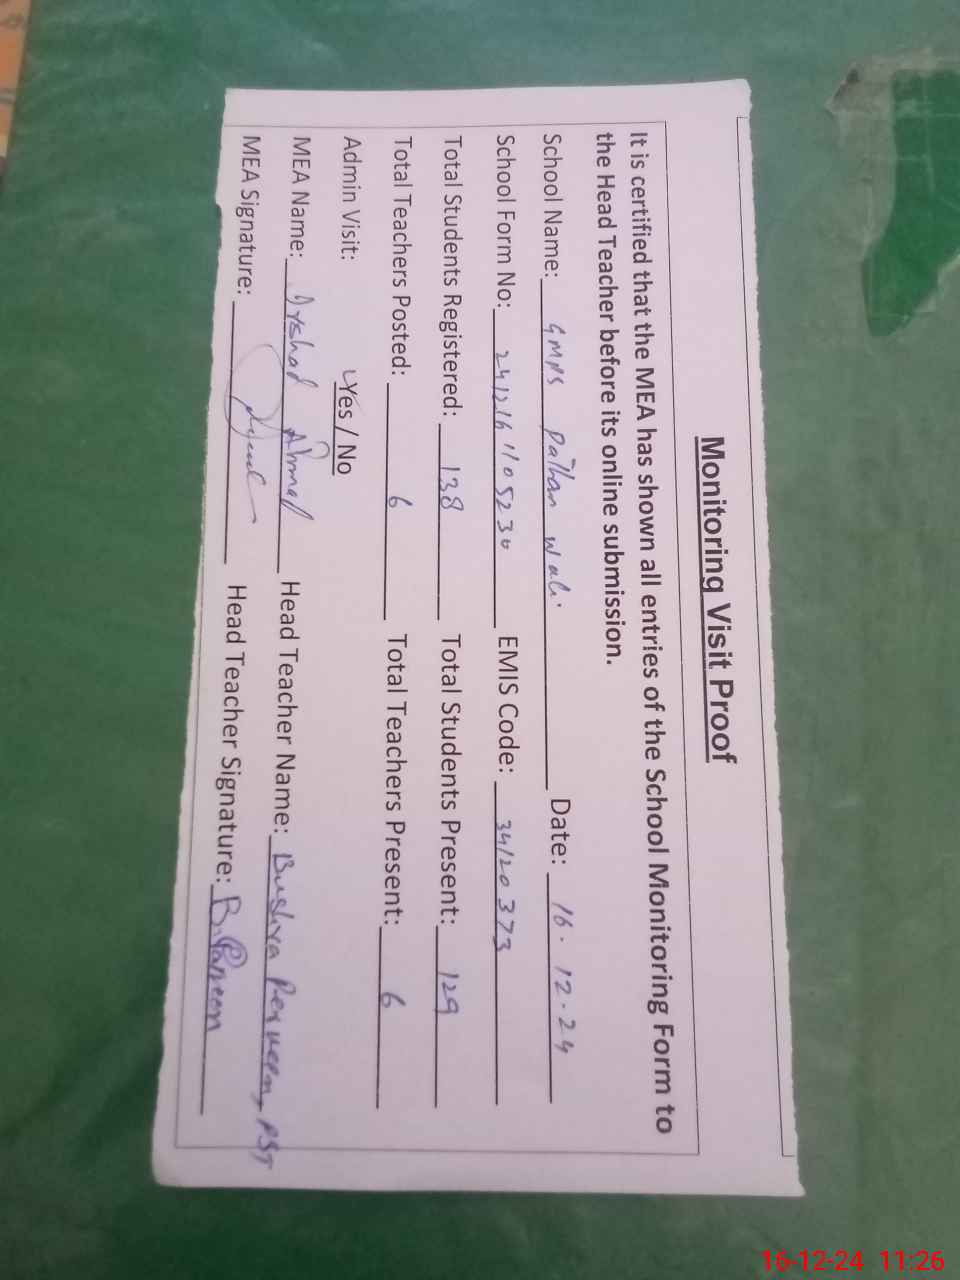 Monitoring Visit Proof
It is certified that the MEA has shown all entries of the School Monitoring Form to
the Head Teacher before its online submission.
School Name: GMPS Pathan Wali Date: 16-12-24
School Form No: EMIS Code: 34120373
Total Students Registered: 138 Total Students Present: 129
Total Teachers Posted: 6 Total Teachers Present: 6
Admin Visit: Yes / No
MEA Name: Arshad Ahmad Head Teacher Name: Bushra Perveen, PST
MEA Signature: Head Teacher Signature: B. Parveen
16-12-24 11:26